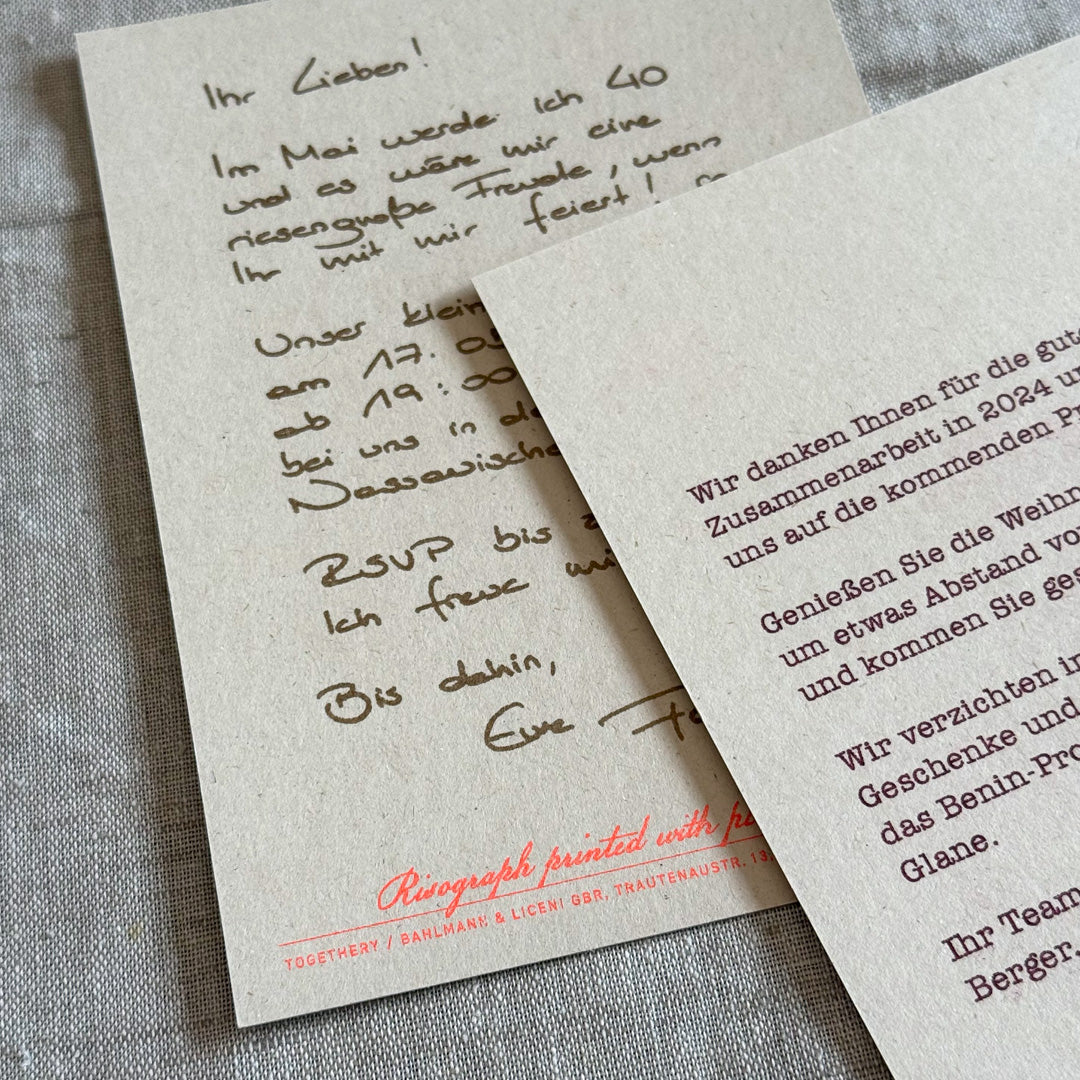 Ihr Lieben!
Im Mai werde ich 40
und es wäre mir eine
riesengroße Freude, wenn
Ihr mit mir feiert!
Unser
am 17.
ab 19:00
bei uns in
RSVP bis
Ich freue
Bis dahin,
Eure
Risograph printed with
TOGETHERY / BAHLMANN & LICENI GBR, TRAUTENAUSTR.
Wir danken Ihnen für die
Zusammenarbeit in 2024
uns auf die kommenden
Genießen Sie die
um etwas Abstand
und kommen Sie
Wir verzichten
Geschenke und
das
Glane.
Ihr Team
Berger.